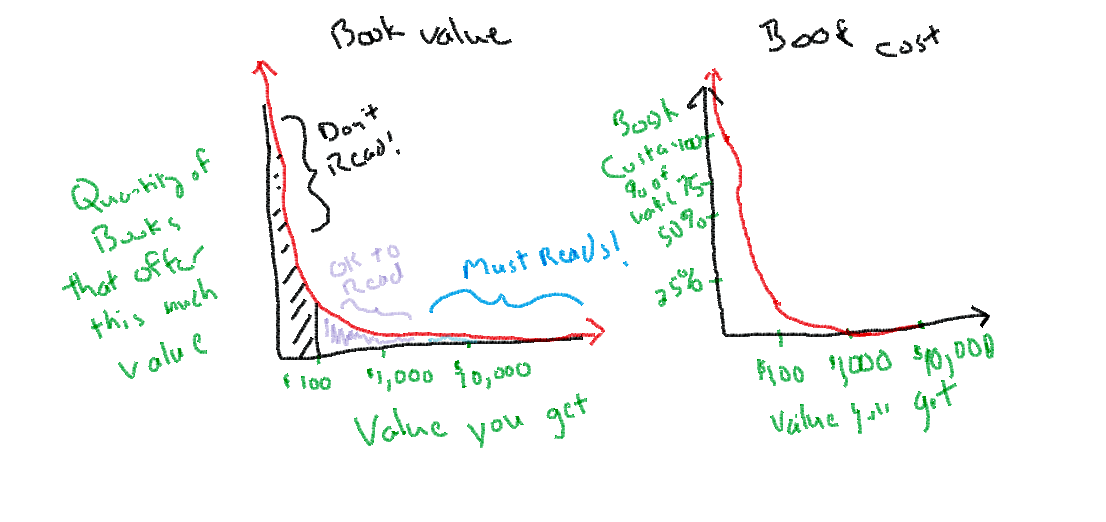 Book value
Don't
Read!
Quantity of
Books
that offer
this much
value
OK to
Read
Must Reads!
$100
$1,000
$10,000
Value you get
Book cost
Book
100
% of
value 75
50%
25%
$100
$1000
$10,000
Value you get